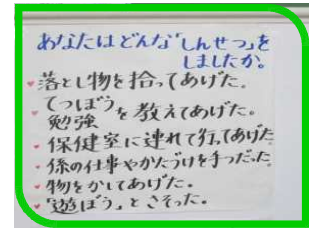 あなたはどんな「しんせつ」を
しましたか。
落とし物を拾ってあげた。
てつぼう
勉強 を教えてあげた。
保健室に連れて行ってあげた
係の仕事やかたづけを手つだった
物をかしてあげた。
「遊ぼう」とさそった。